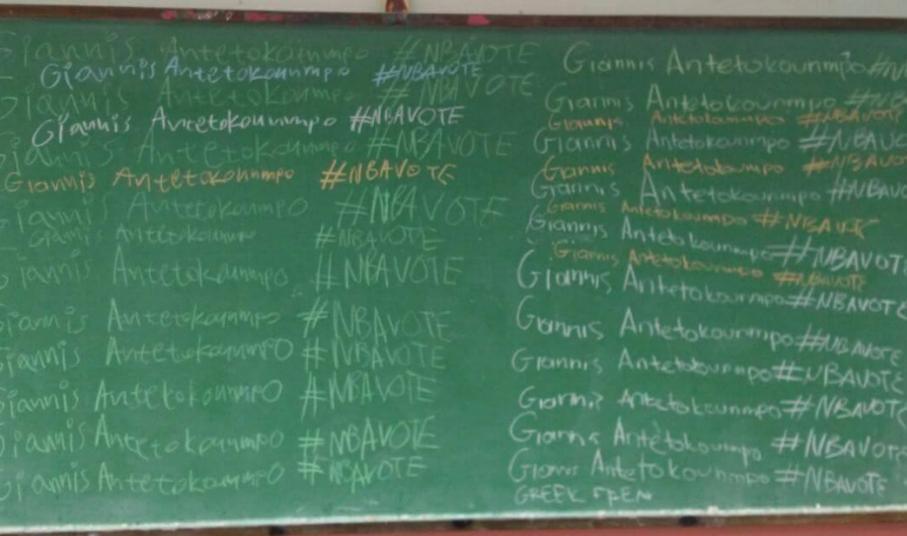 Giannis Antetokounmpo #NBAVOTE
Giannis Antetokounmpo #NBAVOTE
Giannis Antetokounmpo #NBAVOTE
Giannis Antetokounmpo #NBAVOTE
Giannis Antetokounmpo #NBAVOTE
Giannis Antetokounmpo #NBAVOTE
Giannis Antetokounmpo #NBAVOTE
Giannis Antetokounmpo #NBAVOTE
Giannis Antetokounmpo #NBAVOTE
Giannis Antetokounmpo #NBAVOTE
Giannis Antetokounmpo #NBAVOTE
Giannis Antetokounmpo #NBAVOTE
Giannis Antetokounmpo #NBAVOTE
Giannis Antetokounmpo #NBAVOTE
Giannis Antetokounmpo #N
Giannis Antetokounmpo #NB
Giannis Antetokounmpo #NBAVOT
Giannis Antetokounmpo #NBAVO
Giannis Antetokounmpo #NBAVO
Giannis Antetokounmpo #NBAVO
Giannis Antetokounmpo #NBAVOTE
Giannis Antetokounmpo #NBAVOTE
Giannis Antetokounmpo #NBAVOTE
Giannis Antetokounmpo #NBAVOTE
Giannis Antetokounmpo #NBAVOTE
Giannis Antetokounmpo #NBAVOTE
Giannis Antetokounmpo #NBAVOTE
Giannis Antetokounmpo #NBAVOTE
Giannis Antetokounmpo #NBAVOTE
GREEK